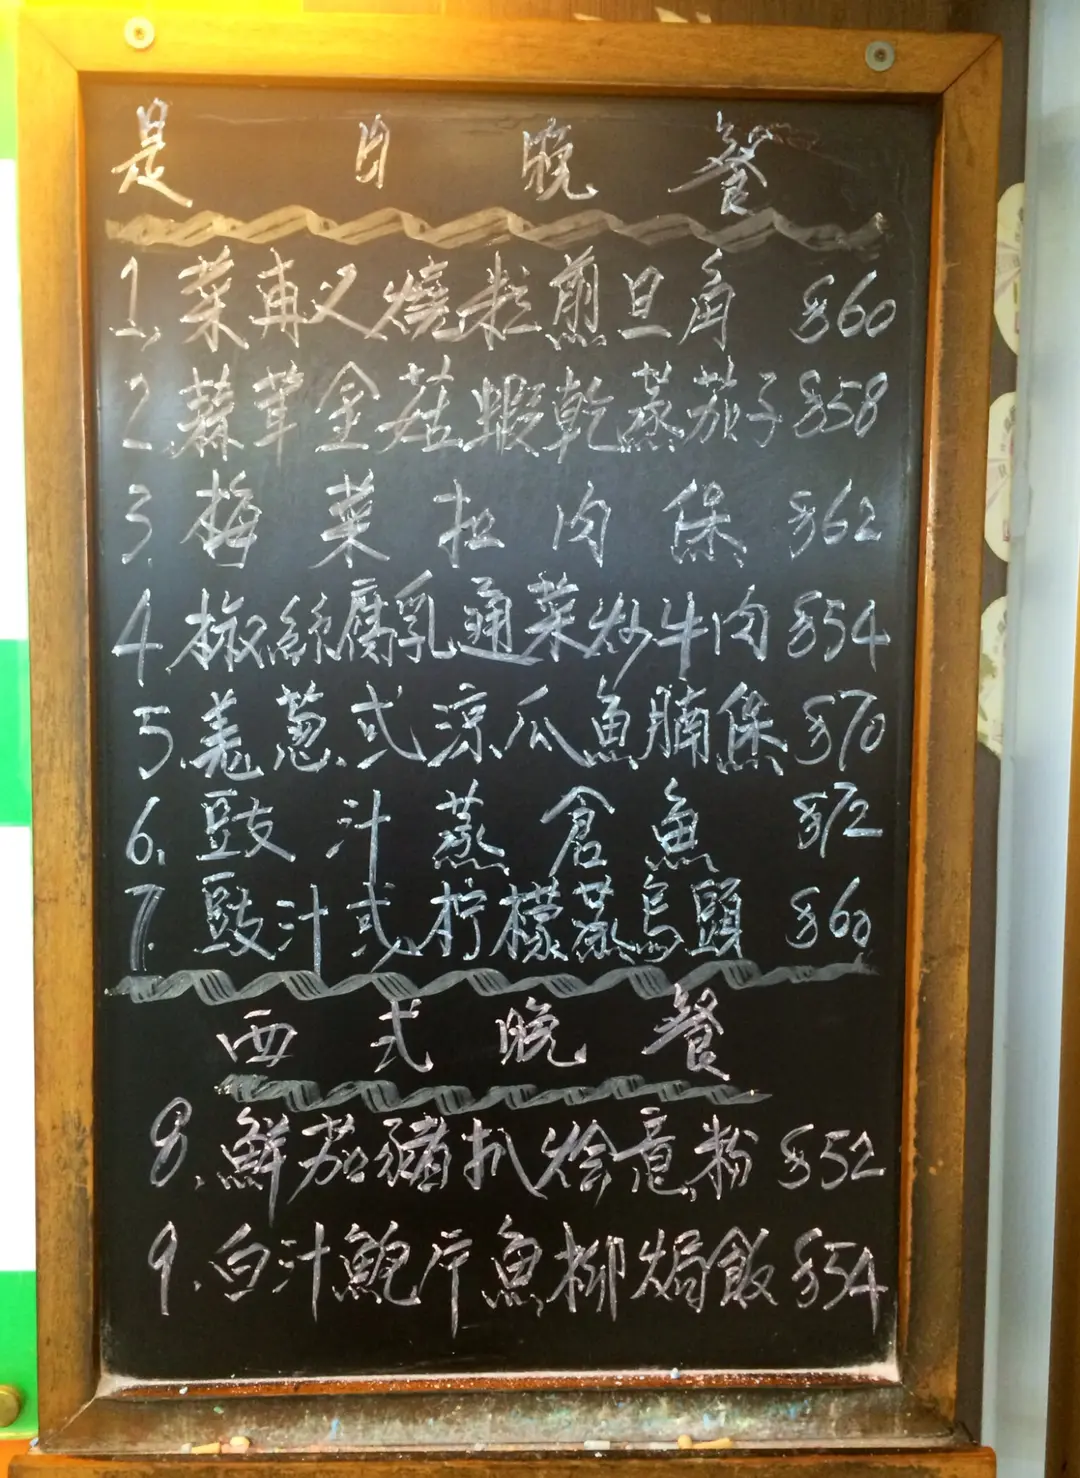 是日晚餐
1. 菜甫叉燒粒煎旦角 $60
2. 蒜茸金菇蝦乾蒸茄子 $58
3. 梅菜扣肉保 $62
4. 椒絲腐乳通菜炒牛肉 $54
5. 羗葱式涼瓜魚腩保 $70
6. 豉汁蒸倉魚 $72
7. 豉汁式柠檬蒸烏頭 $60
西式晚餐
8. 鮮茄豬扒烩意粉 $52
9. 白汁鮑片魚柳焗飯 $54